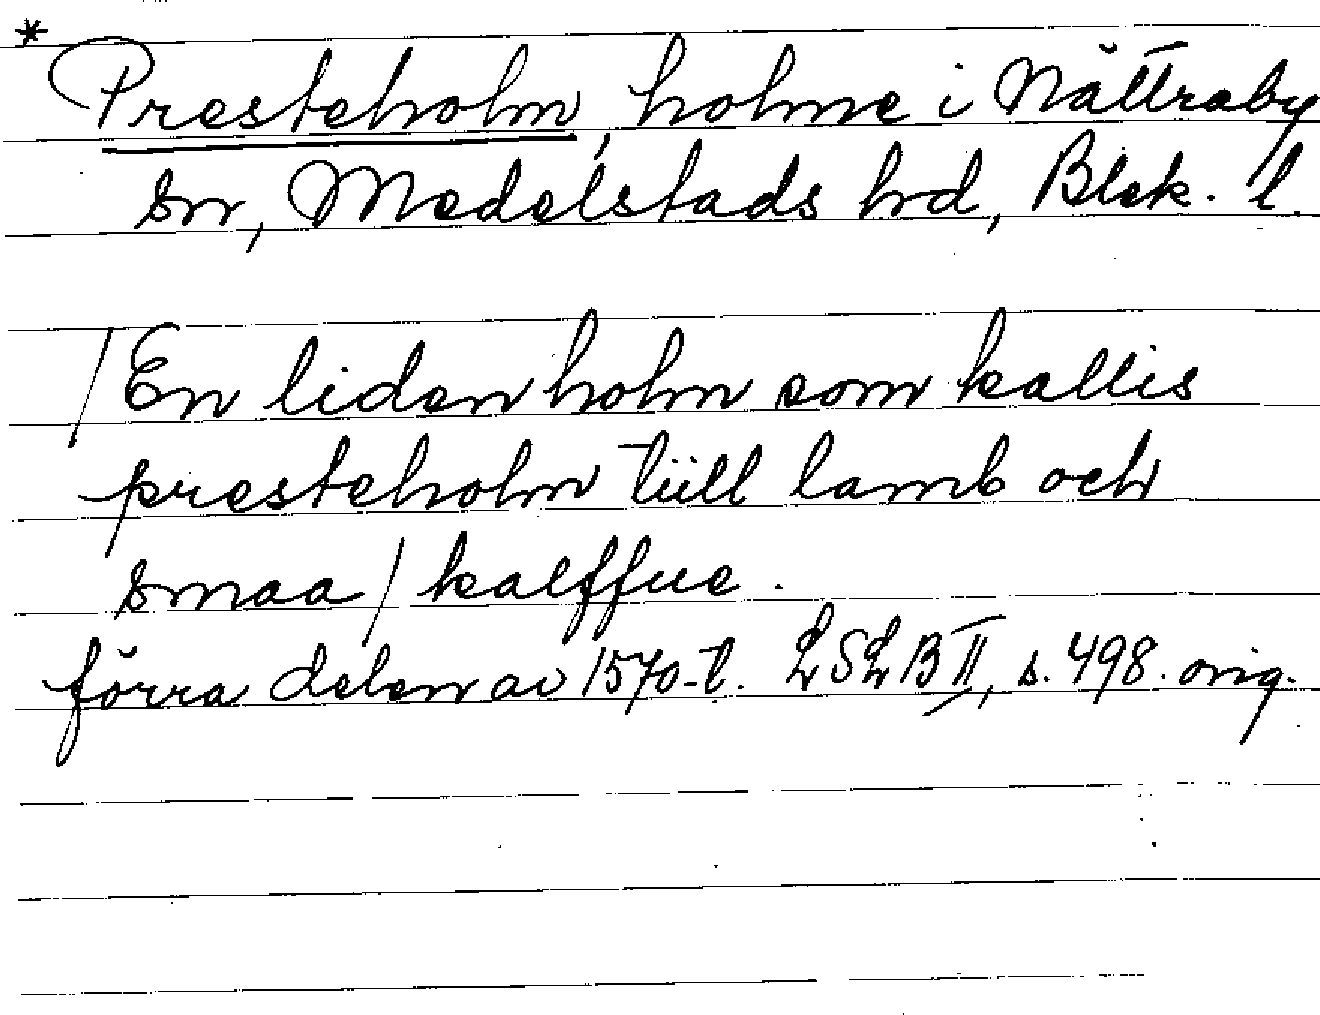 * Presteholm, holme i Nättraby
sn, Medelstads hrd, Blek. l.
/ En liden holm som kallis
presteholm tiill lamb och
smaa / kalffue.
förra delen av 1570-t. LSLB II, s. 498. orig.